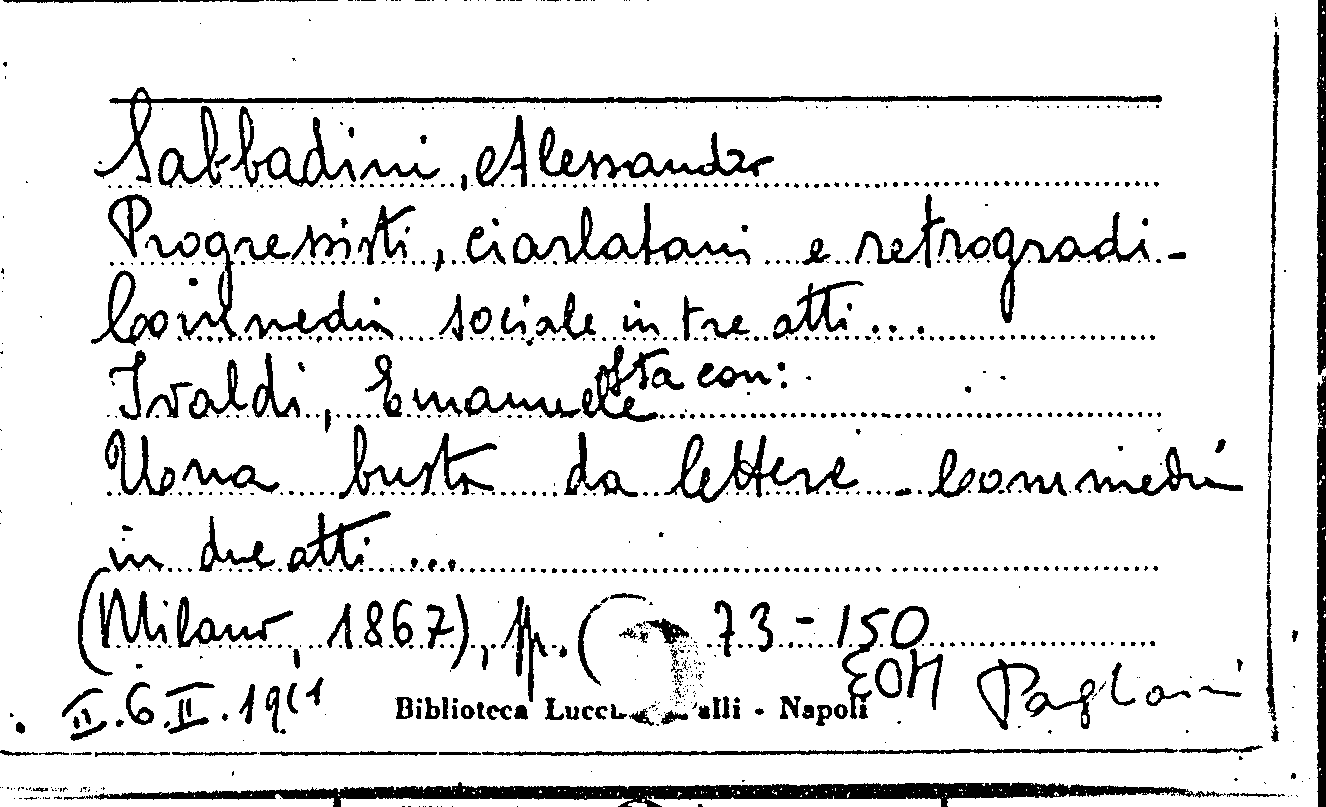 Sabbadini, Alessandro
Progressisti, ciarlatani e retrogradi -
Commedia sociale in tre atti...
sta con:
Ivaldi, Emanuele
Una busta da lettere - Commedia
in due atti ...
(Milano, 1867), pp. ( 73-150
II.6.II.19(1
Biblioteca Lucc alli - Napoli